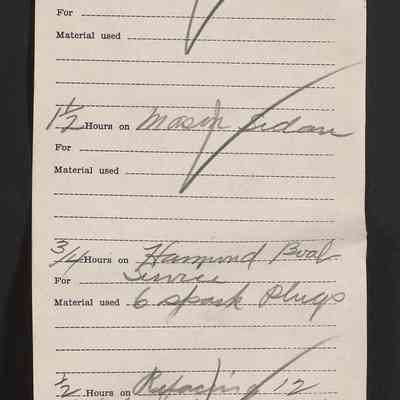 For
Material used
1 1/2 Hours on Mason Sedan
For
Material used
3/4 Hours on Hammond Boat
For Service
Material used 6 spark Plugs
1/2 Hours on Refacing 12